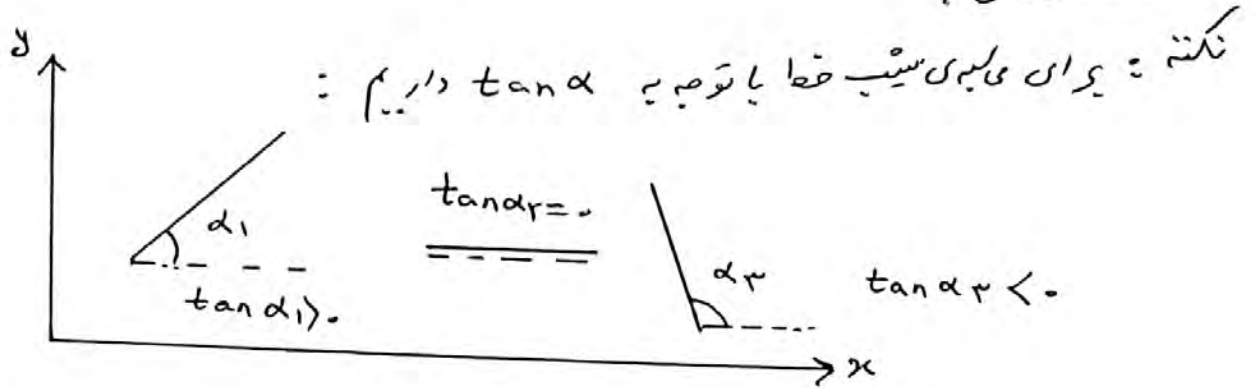 نکته : برای محاسبه‌ی شیب خط با توجه به tan α داریم :
y
α۱
tan α۱ > ۰
tan α۲ = ۰
α۳
tan α۳ < ۰
x